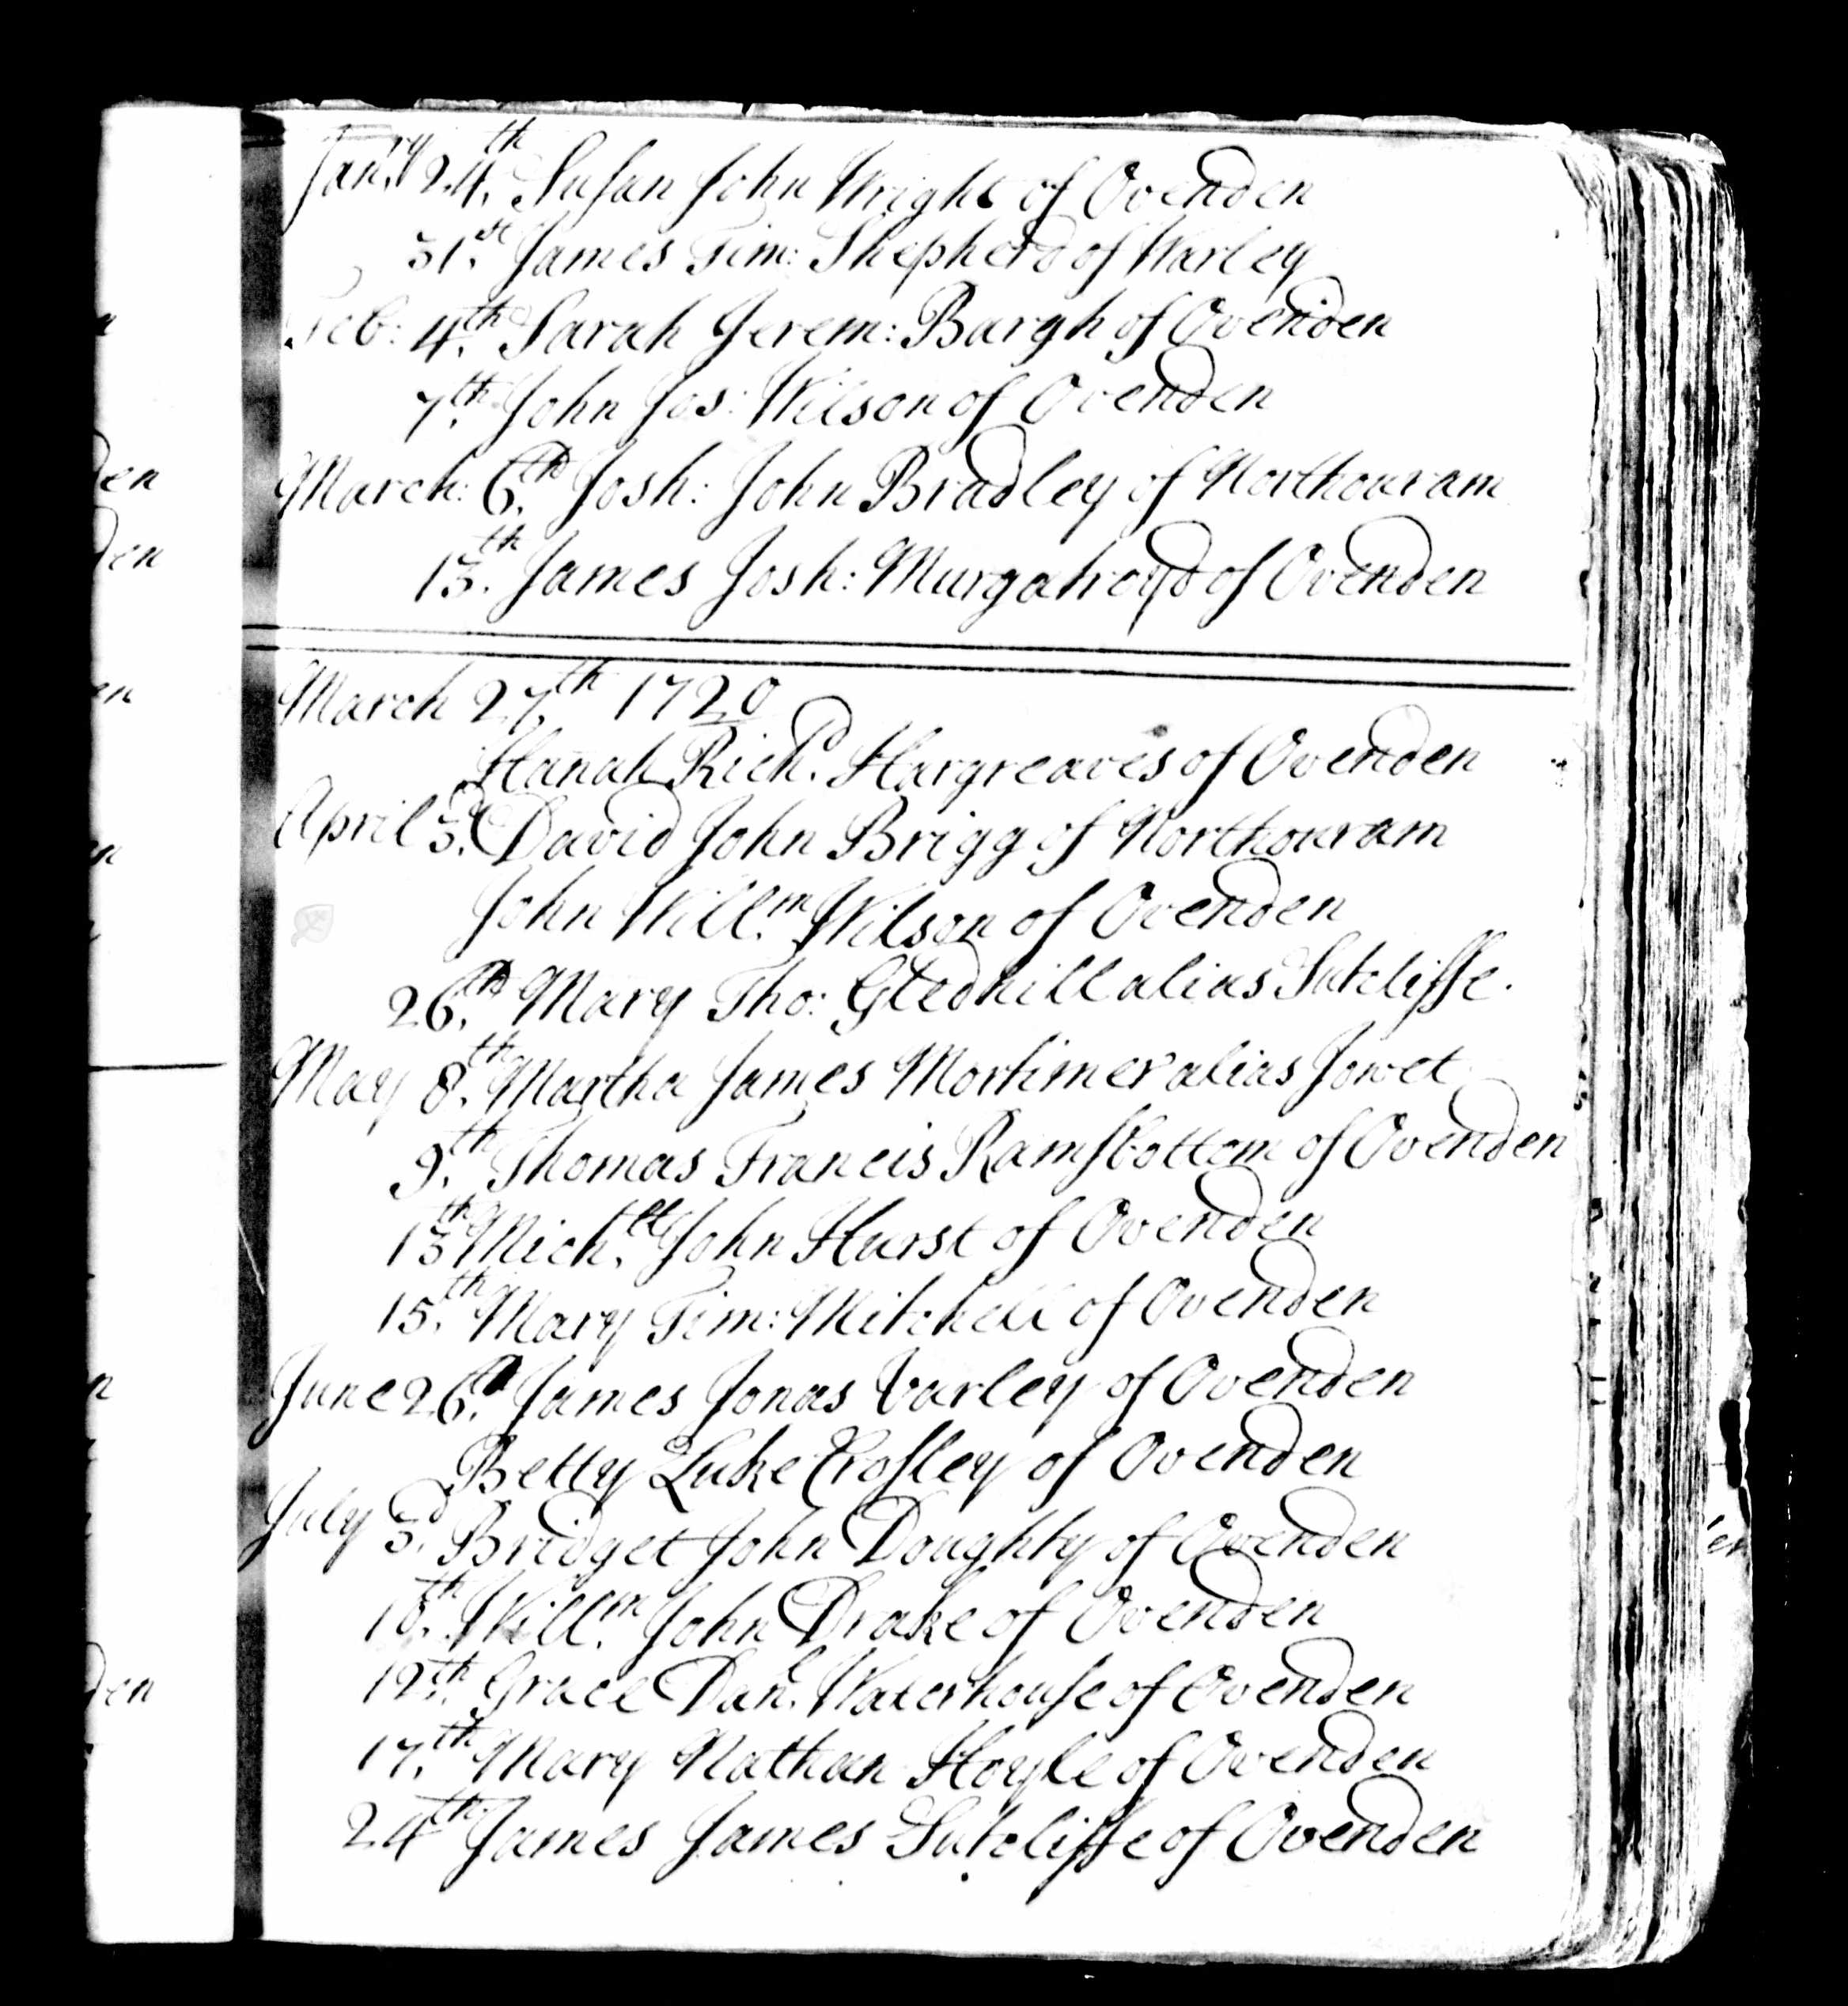 Janry 24th. Susan John Wright of Ovenden
31st. James Tim: Shepherd of Warley
Feb: 4th. Sarah Jerem: Bargh of Ovenden
7th. John Jos: Wilson of Ovenden
March: 6th. Josh: John Bradley of Northouram
13th. James Josh: Murgatroyd of Ovenden
March 27th. 1720
Hanah Richd. Hargreaves of Ovenden
April 3d. David John Brigg of Northouram
John Willm. Wilson of Ovenden
26th. Mary Tho: Gledhill alias Sutcliffe.
May 8th. Martha James Mortimer alias Jowet
9th. Thomas Francis Ramsbottom of Ovenden
13th Michll. John Hurst of Ovenden
15th. Mary Tim: Mitchell of Ovenden
June 26th. James Jonas Varley of Ovenden
Betty Luke Crosley of Ovenden
July 3d. Bridget John Doughty of Ovenden
10th. Willm. John Drake of Ovenden
12th. Grace Danl. Waterhouse of Ovenden
17th. Mary Nathan Hoyle of Ovenden
24th. James James Sutcliffe of Ovenden